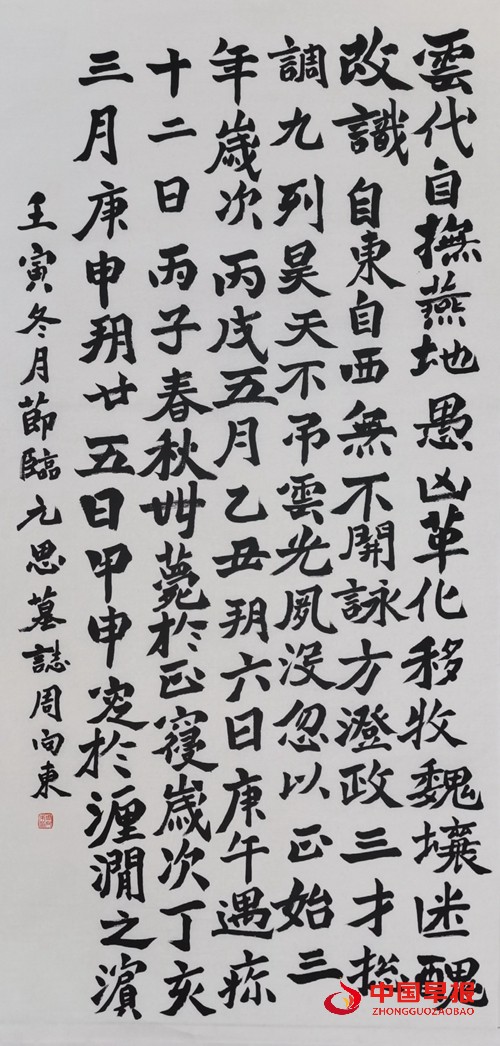 雲代自撫燕地愚凶革化移牧魏壤迷醜
改識自東自西無不開詠方澄政三才揔
調九列昊天不弔雲光夙没忽以正始三
年歲次丙戌五月乙丑朔六日庚午遇疹
十二日丙子春秋卌薨於正寢歲次丁亥
三月庚申朔廿五日甲申窆於瀍澗之濵
壬寅冬月節臨元思墓誌周向東
中国早报
ZHONGGUOZAOBAO